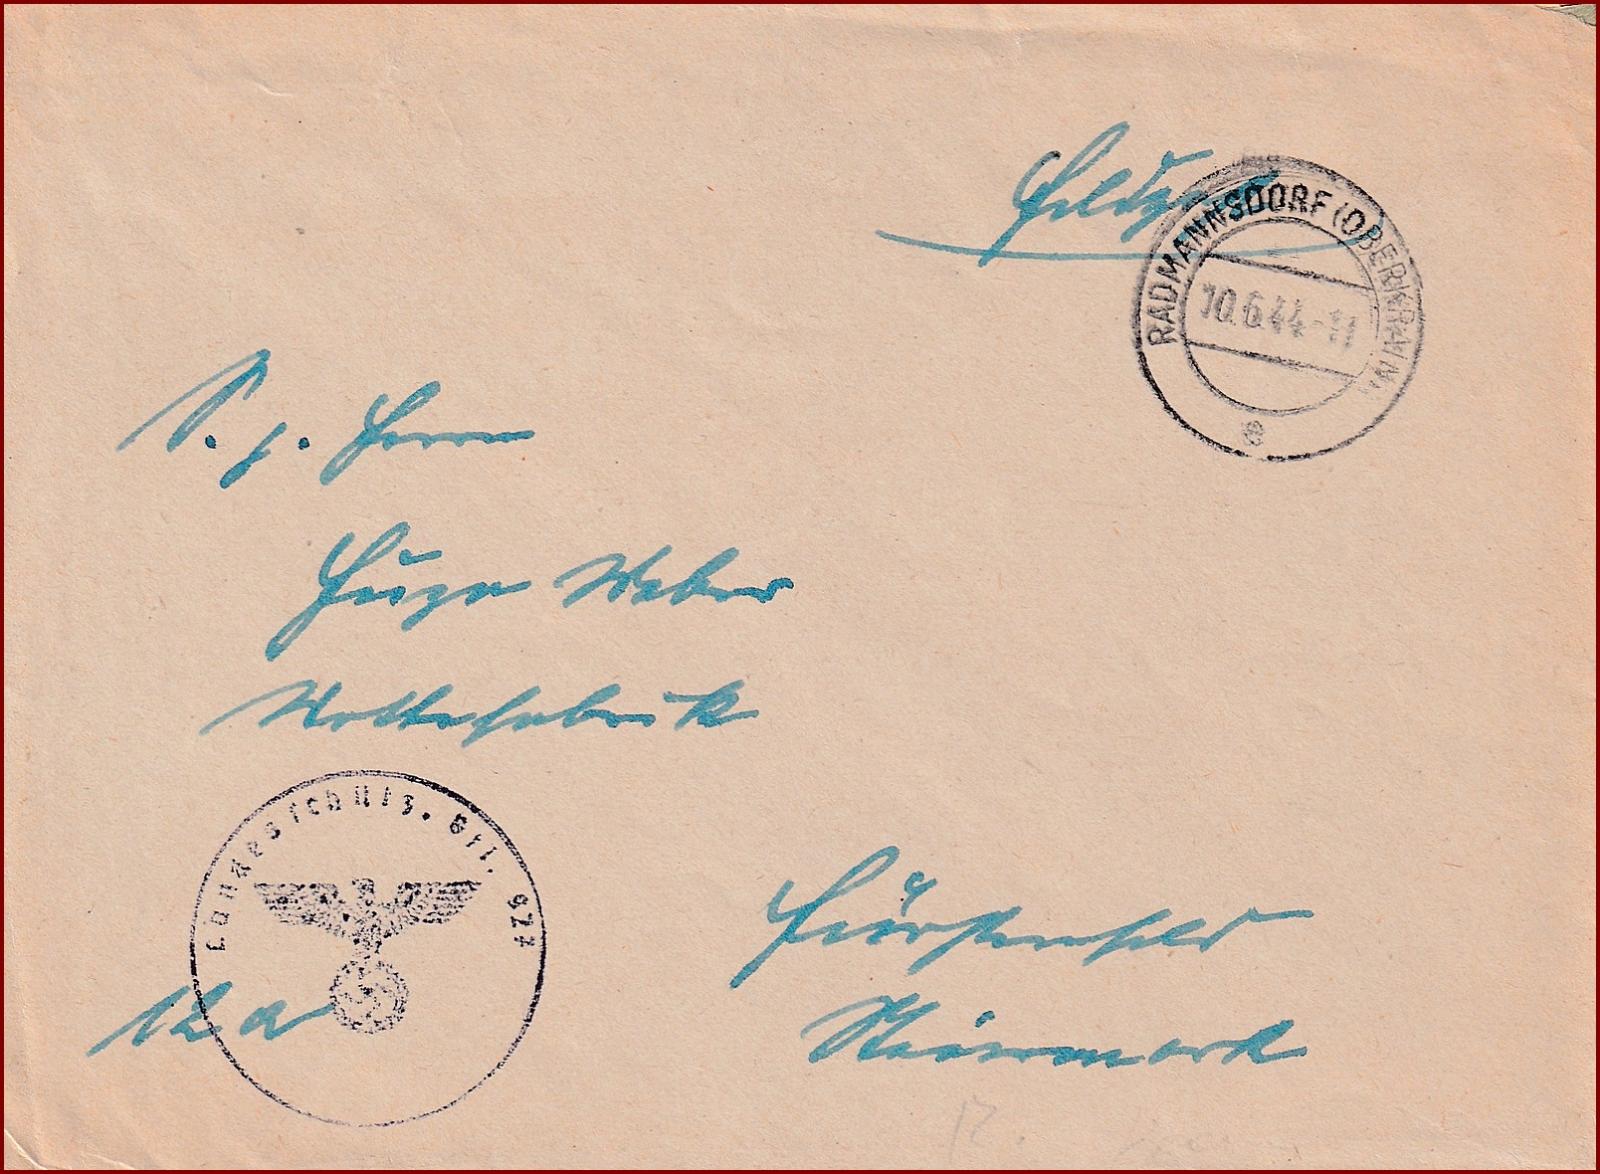 Feldpost
RADMANNSDORF (OBERKRAIN)
10.6.44-11
e
S. g. Herrn
Hugo Weber
Wattefabrik
Landesschütz. Btl. 927
12 a
Fürstenfeld
Steiermark